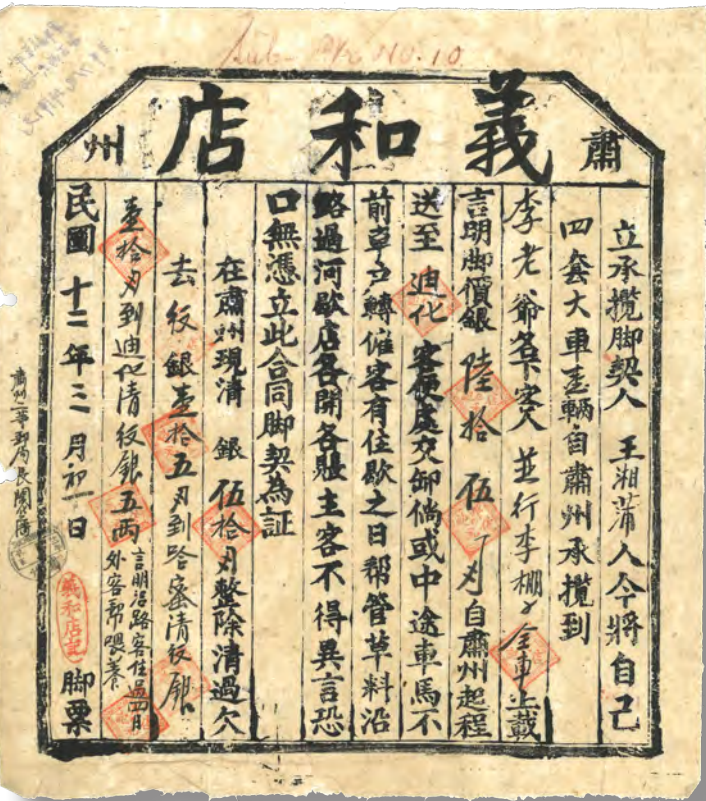 Sub- No. 10
肅 義和店 州
立承攬脚契人 王湘蒲 人今將自己
四套大車壹輛自肅州承攬到
李老爺名下客人 並行李棚子全車上載
言明脚價銀 陸拾伍 刄自肅州起程
送至 迪化 客便處交卸倘或中途車馬不
前車戶轉僱客有住歇之日帮管草料沿
路過河歇店各開各賬主客不得異言恐
口無憑立此合同脚契為証
在肅州現清 銀 伍拾刄整除清過欠
去紋銀壹拾五刄到哈蜜清紋銀
壹拾刄到迪化清紋銀五兩
言明沿路客住過四日
外客帮喂養
民國 十二 年 三 月 初一 日
義和店記
脚票
肅州二等郵局長